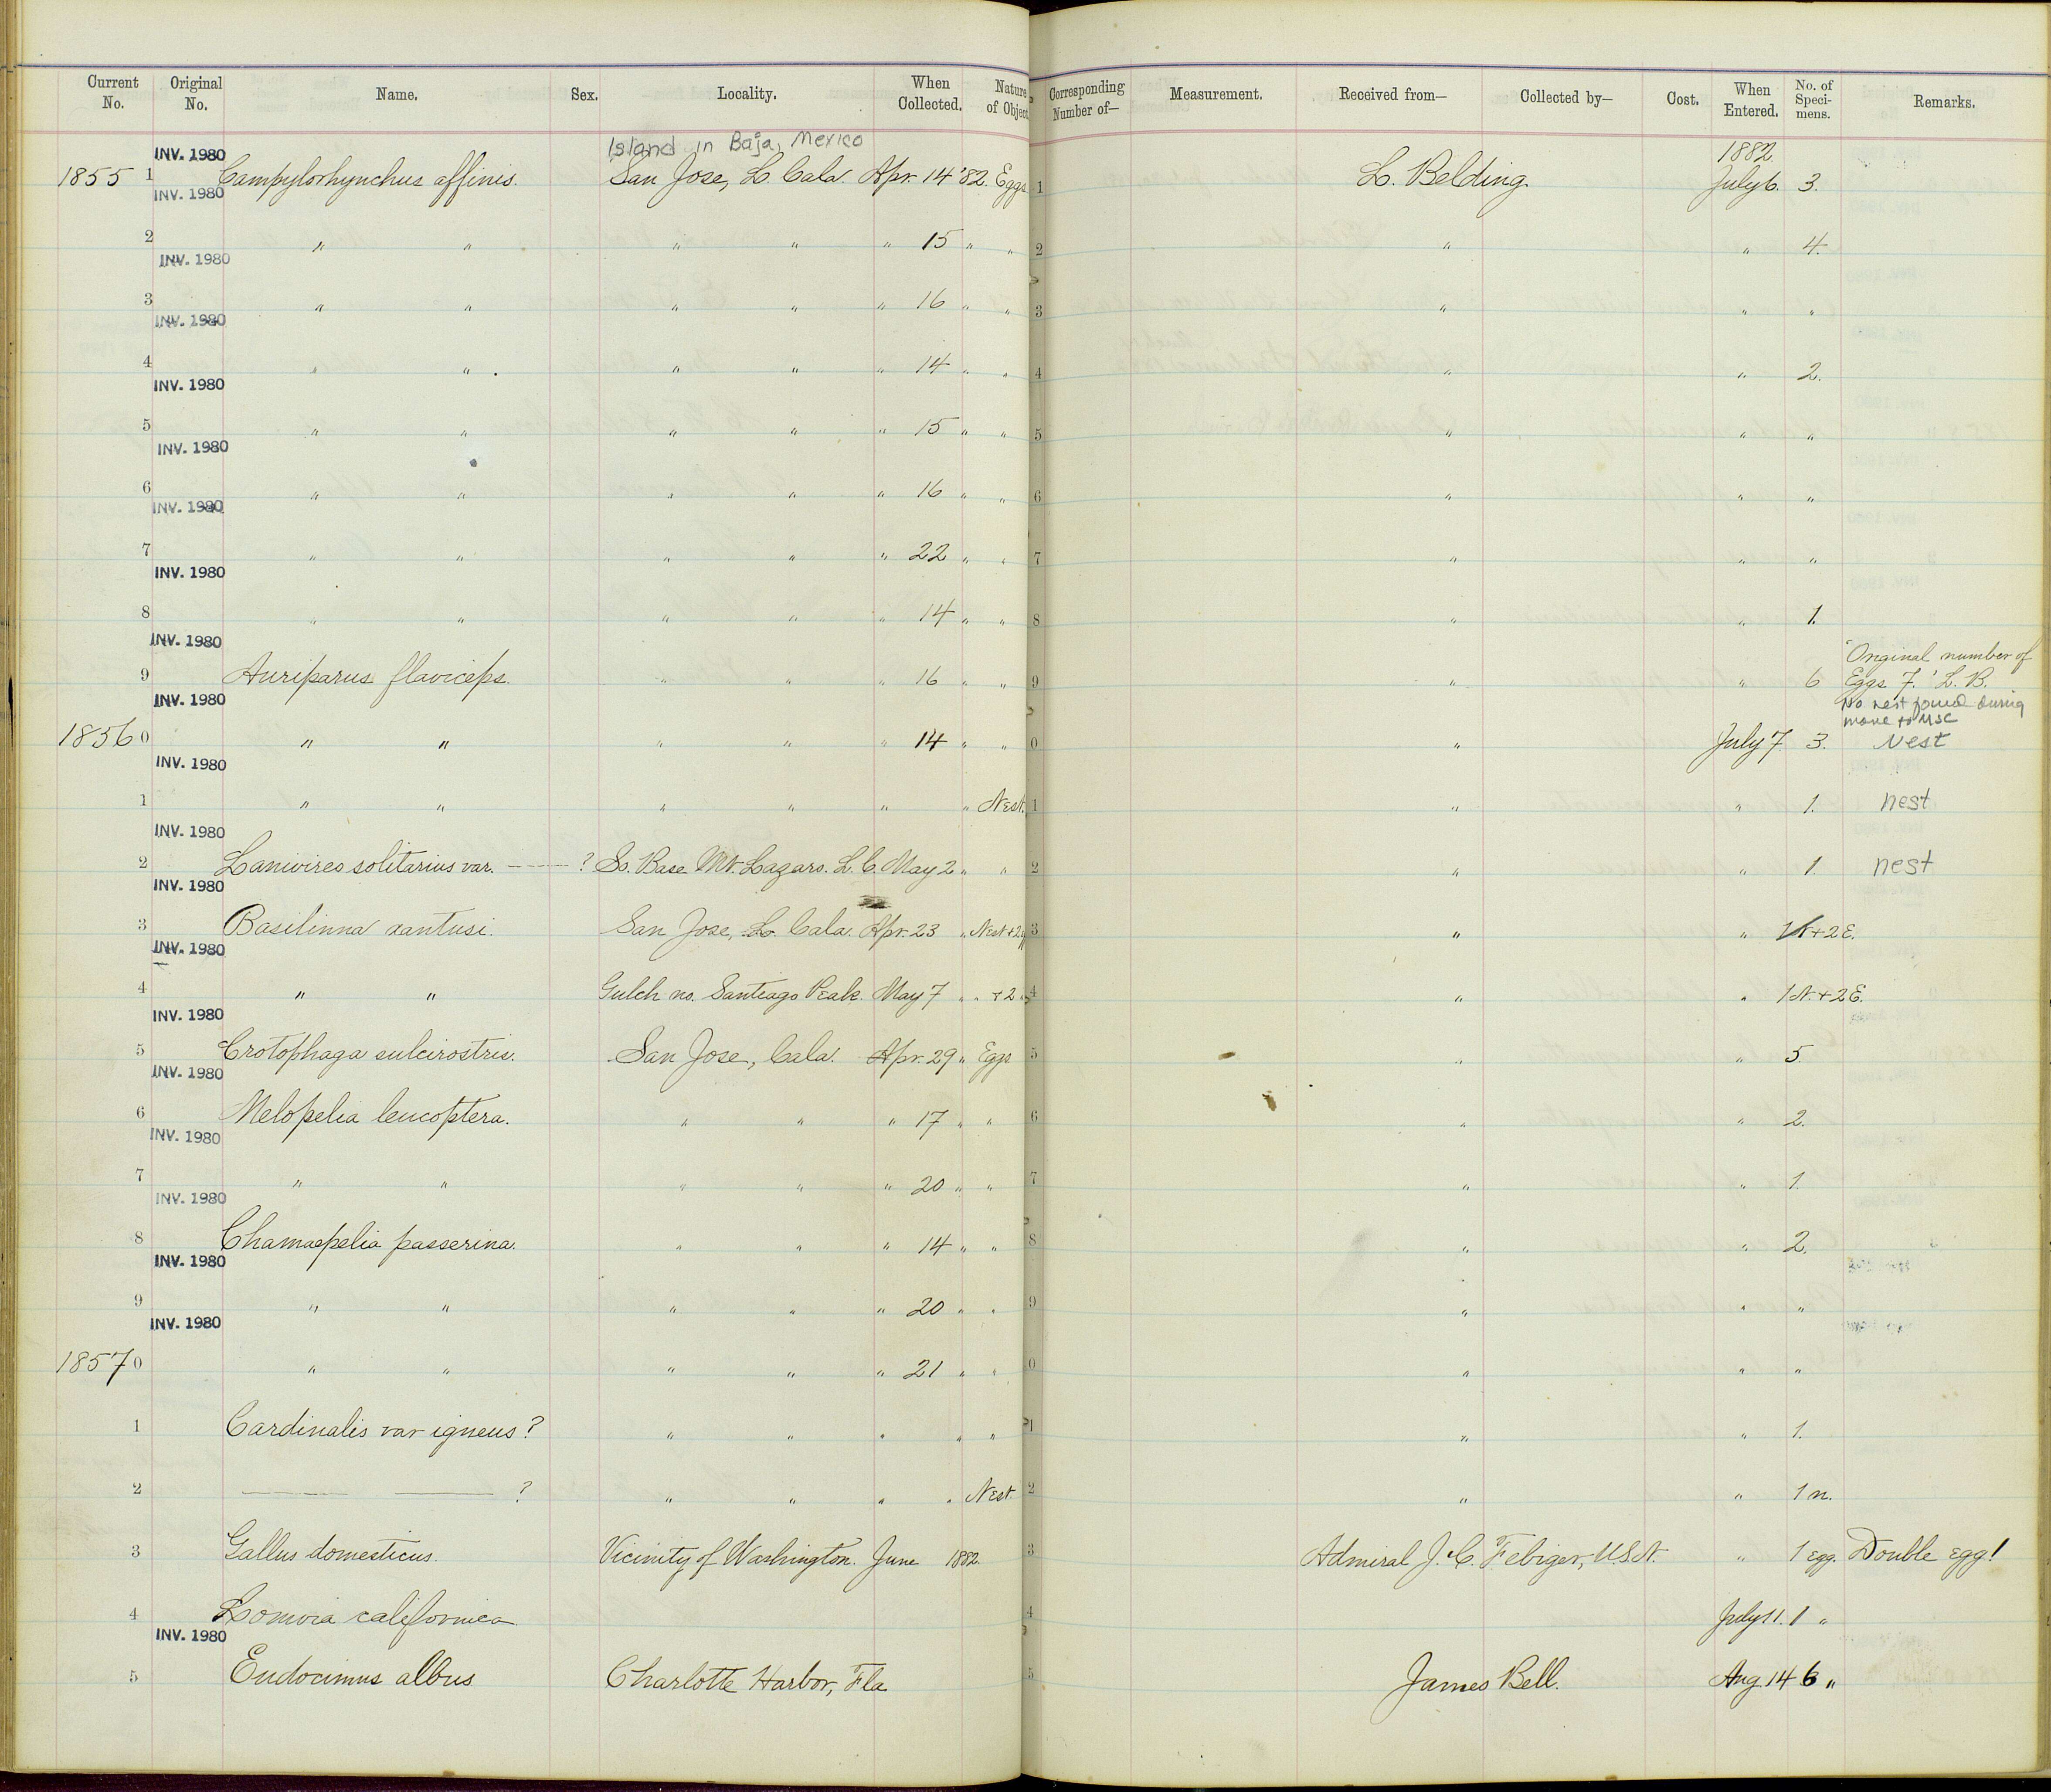 Current No. Original No. Name. Sex. Locality. When Collected. Nature of Object. Corresponding Number of— Measurement. Received from— Collected by— Cost. When Entered. No. of Specimens. Remarks.
Island in Baja, Mexico
INV. 1980 1882.
1855 1 Campylorhynchus affinis. San Jose, L. Cala. Apr. 14 '82. Eggs 1 L. Belding. July 6. 3.
INV. 1980
2 " " " " " 15 " " 2 " " 4.
INV. 1980
3 " " " " " 16 " " 3 " " "
INV. 1980
4 " " . " " " 14 " " 4 " " 2.
INV. 1980
5 " " " " " 15 " " 5 " " "
INV. 1980
6 " " " " " 16 " " 6 " " "
INV. 1980
7 " " " " " 22 " " 7 " " "
INV. 1980
8 " " " " " 14 " " 8 " " 1.
INV. 1980
'Original number of
9 Auriparus flaviceps. " " " 16 " " 9 " " 6 Eggs 7.' L. B.
INV. 1980 No nest found during
move to MSC
1856 0 " " " " " 14 " " 0 " July 7 3. Nest
INV. 1980
1 " " " " " " Nest. 1 " " 1. nest
INV. 1980
2 Lanivireo solitarius var. — ? So. Base Mt. Lazaro. L. C. May 2 " " 2 " " 1. nest
INV. 1980
3 Basilinna xantusi. San Jose, L. Cala. Apr. 23 " Nest + 2 3 " " 1N + 2 E.
INV. 1980
4 " " Gulch no. Santiago Peak. May 7 " " + 2 4 " " 1 N. + 2 E.
INV. 1980
5 Crotophaga sulcirostris. San Jose, Cala. Apr. 29 " Eggs 5 " " 5.
INV. 1980
6 Melopelia leucoptera. " " " 17 " " 6 " " 2.
INV. 1980
7 " " " " " 20 " " 7 " " 1.
INV. 1980
8 Chamaepelia passerina. " " " 14 " " 8 " " 2.
INV. 1980
9 " " " " " 20 " " 9 " " "
INV. 1980
1857 0 " " " " " 21 " " 0 " " "
1 Cardinalis var igneus? " " " " " 1 " " 1.
2 — — ? " " " " Nest. 2 " " 1 n.
3 Gallus domesticus. Vicinity of Washington. June 1882. 3 Admiral J. C. Febiger, U.S.N. " 1 egg. Double egg!
4 Lomvia californica 4 July 11. 1 "
INV. 1980
5 Eudocimus albus Charlotte Harbor, Fla 5 James Bell. Aug. 14 6 "